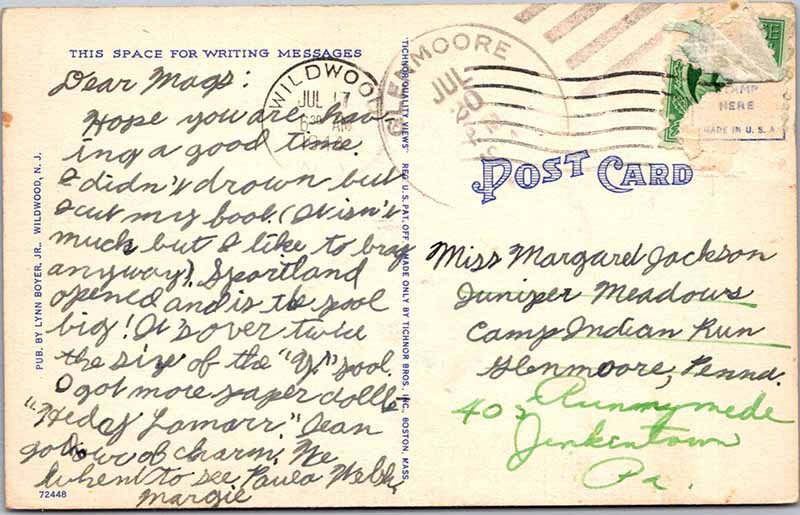 THIS SPACE FOR WRITING MESSAGES
Dear Mags:
Hope you are hav-
ing a good time.
I didn't drown but
I cut my foot. (It isn't
much but I like to brag
anyway). Sportland
opened and is the pool
big! It's over twice
the size of the "Y" pool.
I got more paper dolls
"Hedy Lamarr" Jean
got of charm. We
whent to see Paula Welsh,
Margie
72448
PUB. BY LYNN BOYER, JR., WILDWOOD, N. J.
"TICHNOR QUALITY VIEWS" REG. U. S. PAT. OFF. MADE ONLY BY TICHNOR BROS., INC., BOSTON, MASS.
WILDWOOD
JUL 17
630 AM
GLENMOORE
JUL
20
STAMP
HERE
MADE IN U. S. A.
POST CARD
Miss Margard Jackson
Juniper Meadows
Camp Indian Run
Glenmoore, Penna.
403 Runnymede
Jenkentown
Pa.